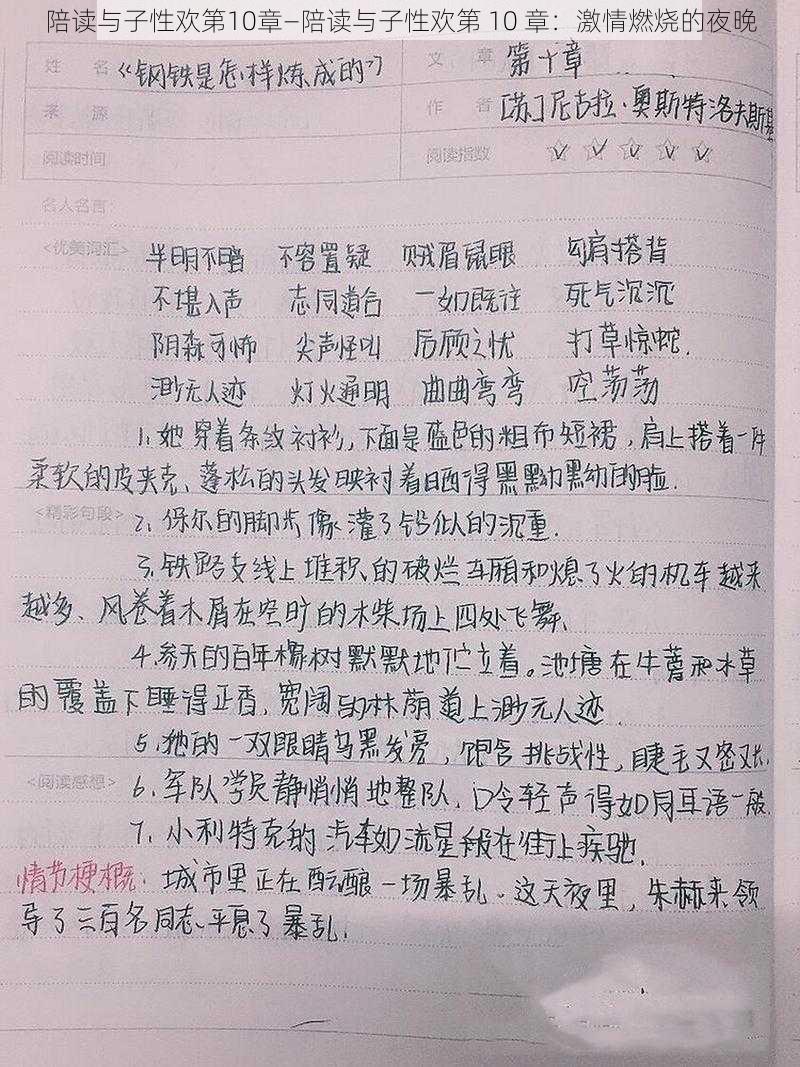 陪读与子性欢第10章—陪读与子性欢第 10 章：激情燃烧的夜晚
姓 名 《钢铁是怎样炼成的》 文 章 第十章
来 源 作 者 [苏]尼古拉·奥斯特洛夫斯基
阅读时间 阅读指数
名人名言：
<优美词汇> 半明不暗 不容置疑 贼眉鼠眼 勾肩搭背
不堪入声 志同道合 一如既往 死气沉沉
阴森可怖 尖声怪叫 后顾之忧 打草惊蛇.
渺无人迹 灯火通明 曲曲弯弯 空荡荡
1.她穿着条纹衬衫,下面是蓝色的粗布短裙,肩上搭着一件
柔软的皮夹克、蓬松的头发映衬着晒得黑黝黝的脸.
<精彩句段> 2、保尔的脚步像灌了铅似的沉重.
3.铁路支线上堆积的破烂车厢和熄了火的机车越来
越多、风卷着木屑在空旷的木柴场上四处飞舞、
4.参天的百年橡树默默地伫立着。池塘在牛蒡和水草
的覆盖下睡得正香,宽阔的林荫道上渺无人迹.
5.她的一双眼睛乌黑发亮,饱含挑战性,睫毛又密又长.
<阅读感想> 6、军队学员静悄悄地整队、口令轻声得如同耳语一般.
7、小利特克的汽车如流星般在街上疾驰.
情节梗概：城市里正在酝酿一场暴乱。这天夜里,朱赫来领
导了三百名同志、平息了暴乱.